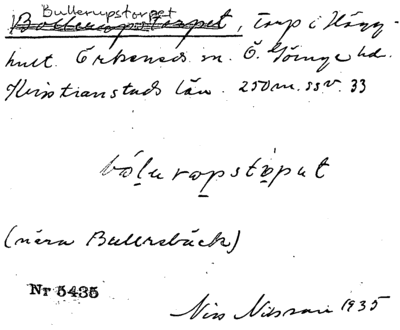 Bullerupstorpet
Bollerupstorpet, torp i Hägg-
hult Örkeneds sn. Ö. Göinge hd.
Kristianstads län. 250 m. ssv. 33
bóḷuropstọput
(nära Bullersbäck)
Nr 5435
Nils Nilsson 1935